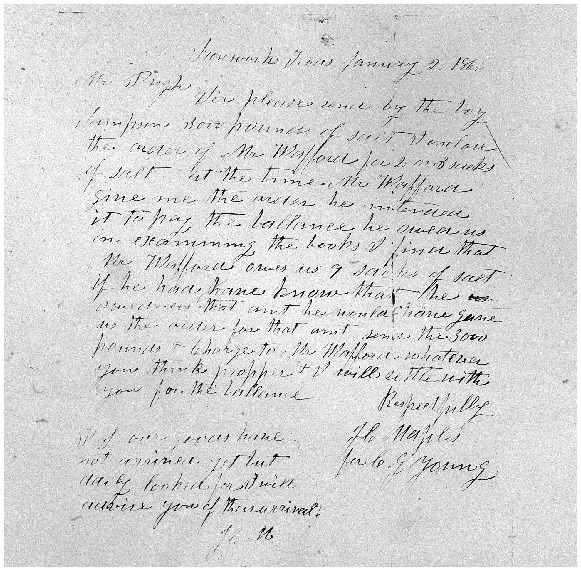 Ironworks Texas January 9. 186
Mr Pugh
Sir please send by the boy
Simpson 3000 pounds of salt. I enclose
the order of Mr Wofford for 2 sacks
of salt at the time Mr Wofford
give me the order he intended
it to pay the ballance he owed us
on examining the books I find that
Mr Wofford owes us 9 sacks of salt
If he had have know that he
owed us that amt he would have gave
us the order for that amt send the 3000
pounds & charge to Mr Wofford whatever
you think propper & I will settle with
you for the ballance
Respectfully
J C Maples
for C. G Young
our goods have
not arrived yet but
daily looked for I will
advise you of their arrival.
J C M